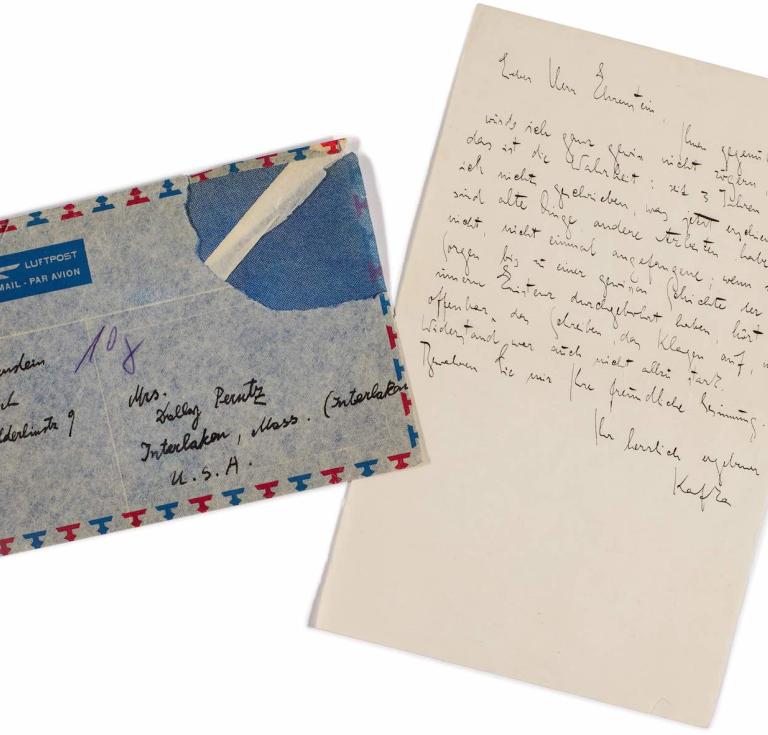 LUFTPOST
MAIL - PAR AVION
10 g
9
Mrs.
Dolly Perutz
Interlaken, Mass. (Interlaken
U.S.A.
Lieber Herr Ehrenstein,
würde ich ganz gewiss nicht zögern
das ist die Wahrheit: seit 3 Jahren
ich nichts geschrieben, was jetzt
sind alte Dinge, andere Arbeiten habe
nicht, nicht einmal angefangene; wenn
Sorgen bis zu einer gewissen Schichte der
innern Existenz durchgebohrt haben, hört
offenbar das Schreiben, das Klagen auf,
Widerstand war auch nicht allzu stark.
Bewahren Sie mir Ihre freundliche Gesinnung.
Ihr herzlich ergebener
Kafka